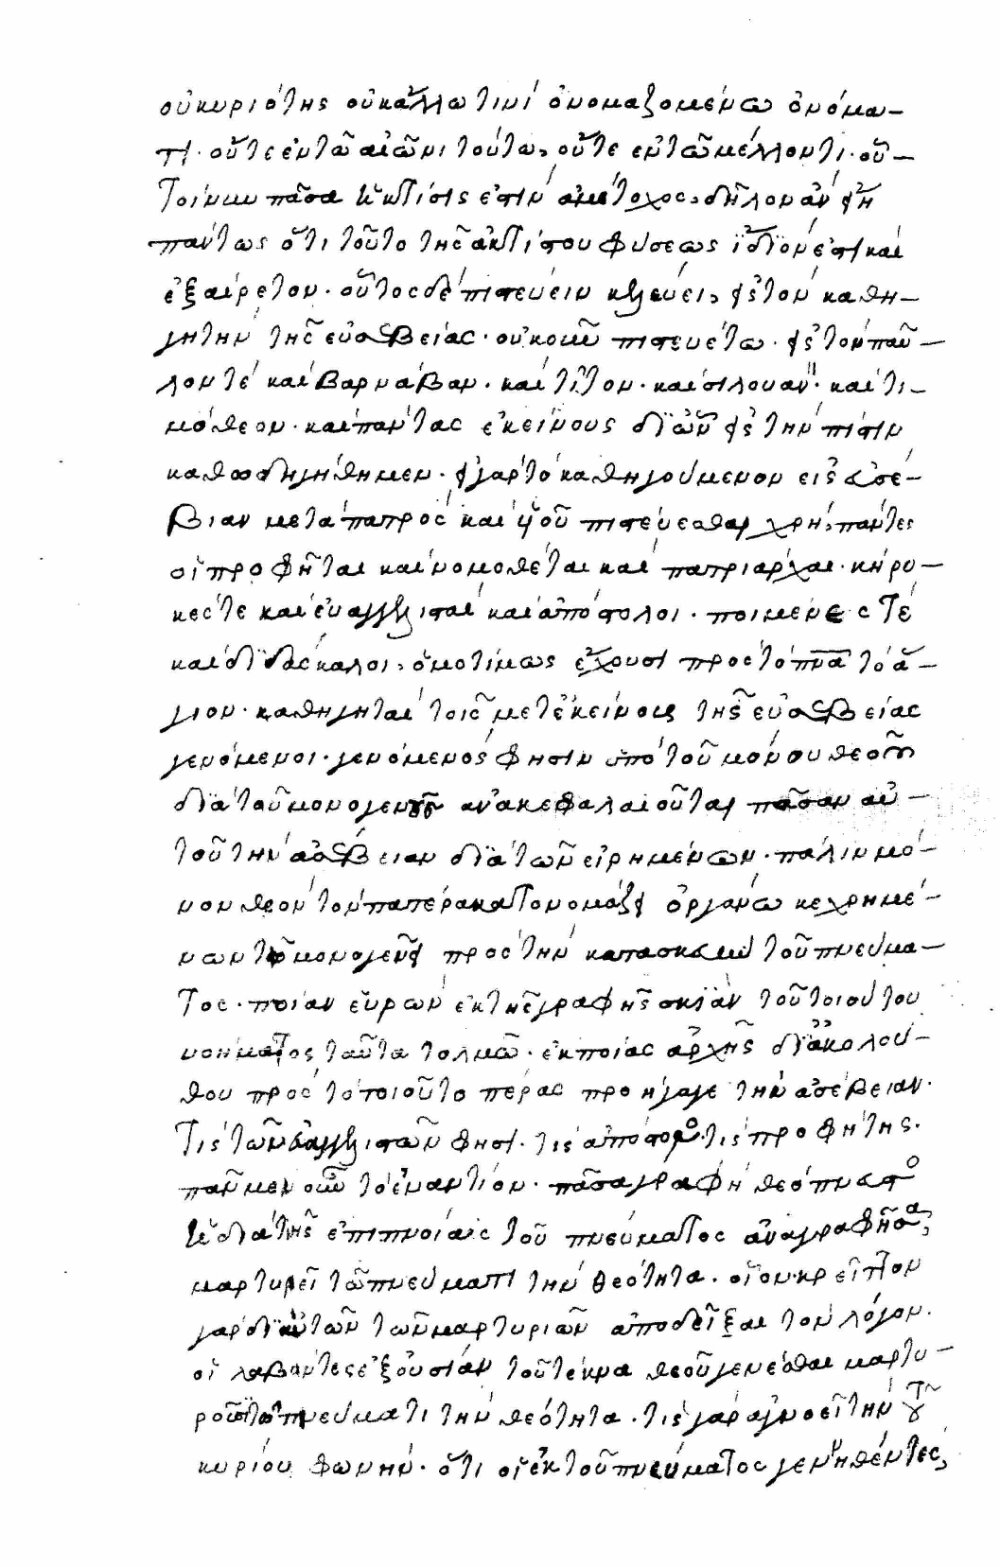 οὐ κυριότης οὐκ ἄλλω τινὶ ὀνομαζομένω ὀνόμα-
τι· οὔτε ἐν τῶ αἰῶνι τούτω, οὔτε ἐν τῶ μέλλοντι· οὗ
τοίνυν πᾶσα ἡ κτίσις ἐστὶν ἀμέτοχος, δῆλον ἂν εἴη
πάντως ὅτι τοῦτο τῆς ἀκτίστου φύσεως ἴδιόν ἐστι καὶ
ἐξαίρετον· οὗτος δὲ πιστεύειν κελεύει, εἰς τὸν καθη-
γητὴν τῆς εὐσεβείας· οὐκοῦν πιστευέτω· εἰς τὸν παῦ-
λον τὲ καὶ βαρνάβαν· καὶ τίτον· καὶ σιλουανὸν· καὶ τι-
μόθεον· καὶ πάντας ἐκείνους δι ὧν εἰς τὴν πίστιν
καθωδηγήθημεν· εἰ γὰρ τὸ καθηγούμενον εἰς εὐσέ-
βιαν μετὰ πατρὸς καὶ υἱοῦ πιστεύεσθαι χρὴ, πάντες
οἱ προφῆται καὶ νομοθέται καὶ πατριάρχαι· κήρυ-
κές τε καὶ εὐαγγελισταὶ καὶ ἀπόστολοι· ποιμένες τὲ
καὶ διδάσκαλοι, ὁμοτίμως ἔχουσι πρὸς τὸ πνα τὸ ἅ-
γιον· καθηγηταὶ τοῖς μετ ἐκείνοις τῆς εὐσεβείας
γενόμενοι· γενόμενος φησὶν ὑπὸ τοῦ μόνου θεοῦ
διὰ τοῦ μονογενοῦς ἀνακεφαλαιοῦται πᾶσαν αὐ-
τοῦ τὴν ἀσέβειαν διὰ τῶν εἰρημένων· πάλιν μό-
νον θεὸν τὸν πατέρα κατονομάζει ὀργάνω κεχρημέ-
νων τῶ μονογενεῖ πρὸς τὴν κατασκευὴν τοῦ πνεύμα-
τος· ποίαν εὑρὼν ἐκ τῆς γραφῆς σκιὰν τοῦ τοιούτου
νοήματος ταῦτα τολμᾶ· ἐκ ποίας ἀρχῆς δι ἀκολού-
θου πρὸς τὸ τοιοῦτο πέρας προήγαγε τὴν ἀσέβειαν·
τίς τῶν εὐαγγελιστῶν φησι· τίς ἀπόστολος· τίς προφήτης·
πᾶν μὲν οὖν τὸ ἐναντίον· πᾶσα γραφὴ θεόπνευστο
ἡ διὰ τῆς ἐπιπνοίας τοῦ πνεύματος ἀναγραφῆσα,
μαρτυρεῖ τῶ πνεύματι τὴν θεότητα· οἷον· κρεῖττον
γὰρ δι αὐτῶν τῶν μαρτυριῶν ἀποδεῖξαι τὸν λόγον·
οἱ λαβόντες ἐξουσίαν τοῦ τέκνα θεοῦ γενέσθαι μαρτυ-
ροῦσι τῶ πνεύματι τὴν θεότητα· τίς γὰρ ἀγνοεῖ τὴν τοῦ
κυρίου φωνὴν· ὅτι οἱ ἐκ τοῦ πνεύματος γεννηθέντες,